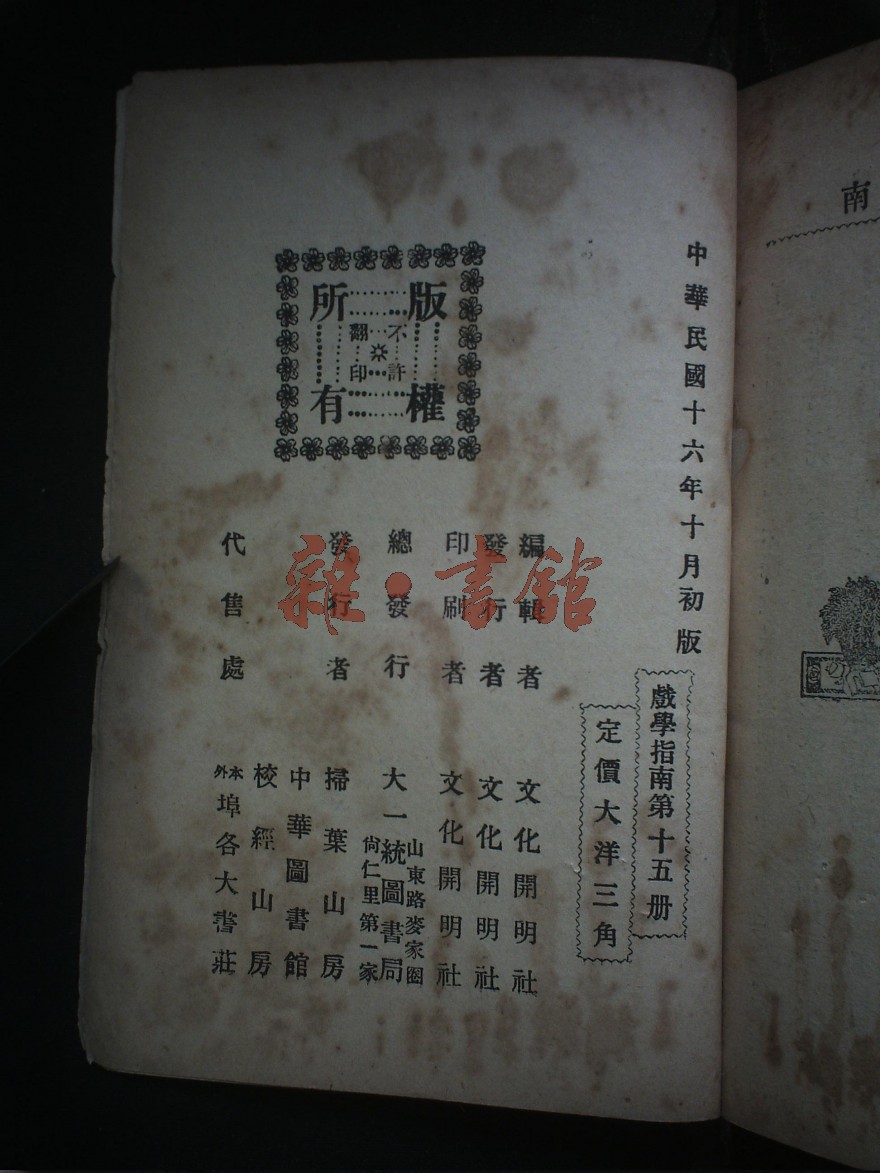 南
中華民國十六年十月初版
戲學指南第十五册
定價大洋三角
版權
所有
不許
翻印
編輯者 文化開明社
發行者 文化開明社
印刷者 文化開明社
總發行 大一統圖書局
山東路麥家圈
尙仁里第一家
發行者 掃葉山房
中華圖書館
校經山房
代售處 本外埠各大書莊
雜·書館